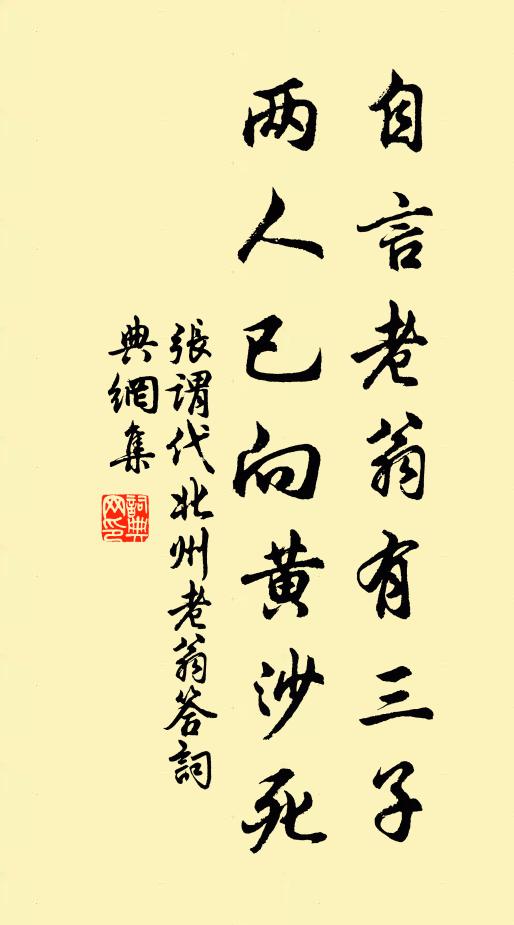 自言老翁有三子
两人已向黄沙死
張謂代北州老翁答詞
典網集
詞典网印